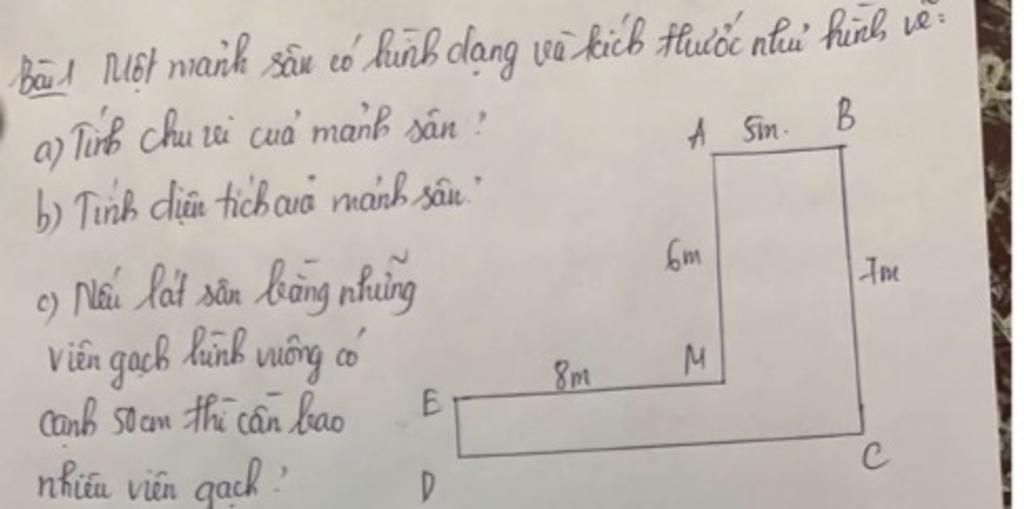 Bài 1 Một mảnh sân có hình dạng và kích thước như hình vẽ:
a) Tính chu vi của mảnh sân?
b) Tính diện tích của mảnh sân?
c) Nếu lát sân bằng những
viên gạch hình vuông có
cạnh 50cm thì cần bao
nhiêu viên gạch?
A 5m. B
6m 7m
8m M
E
D C